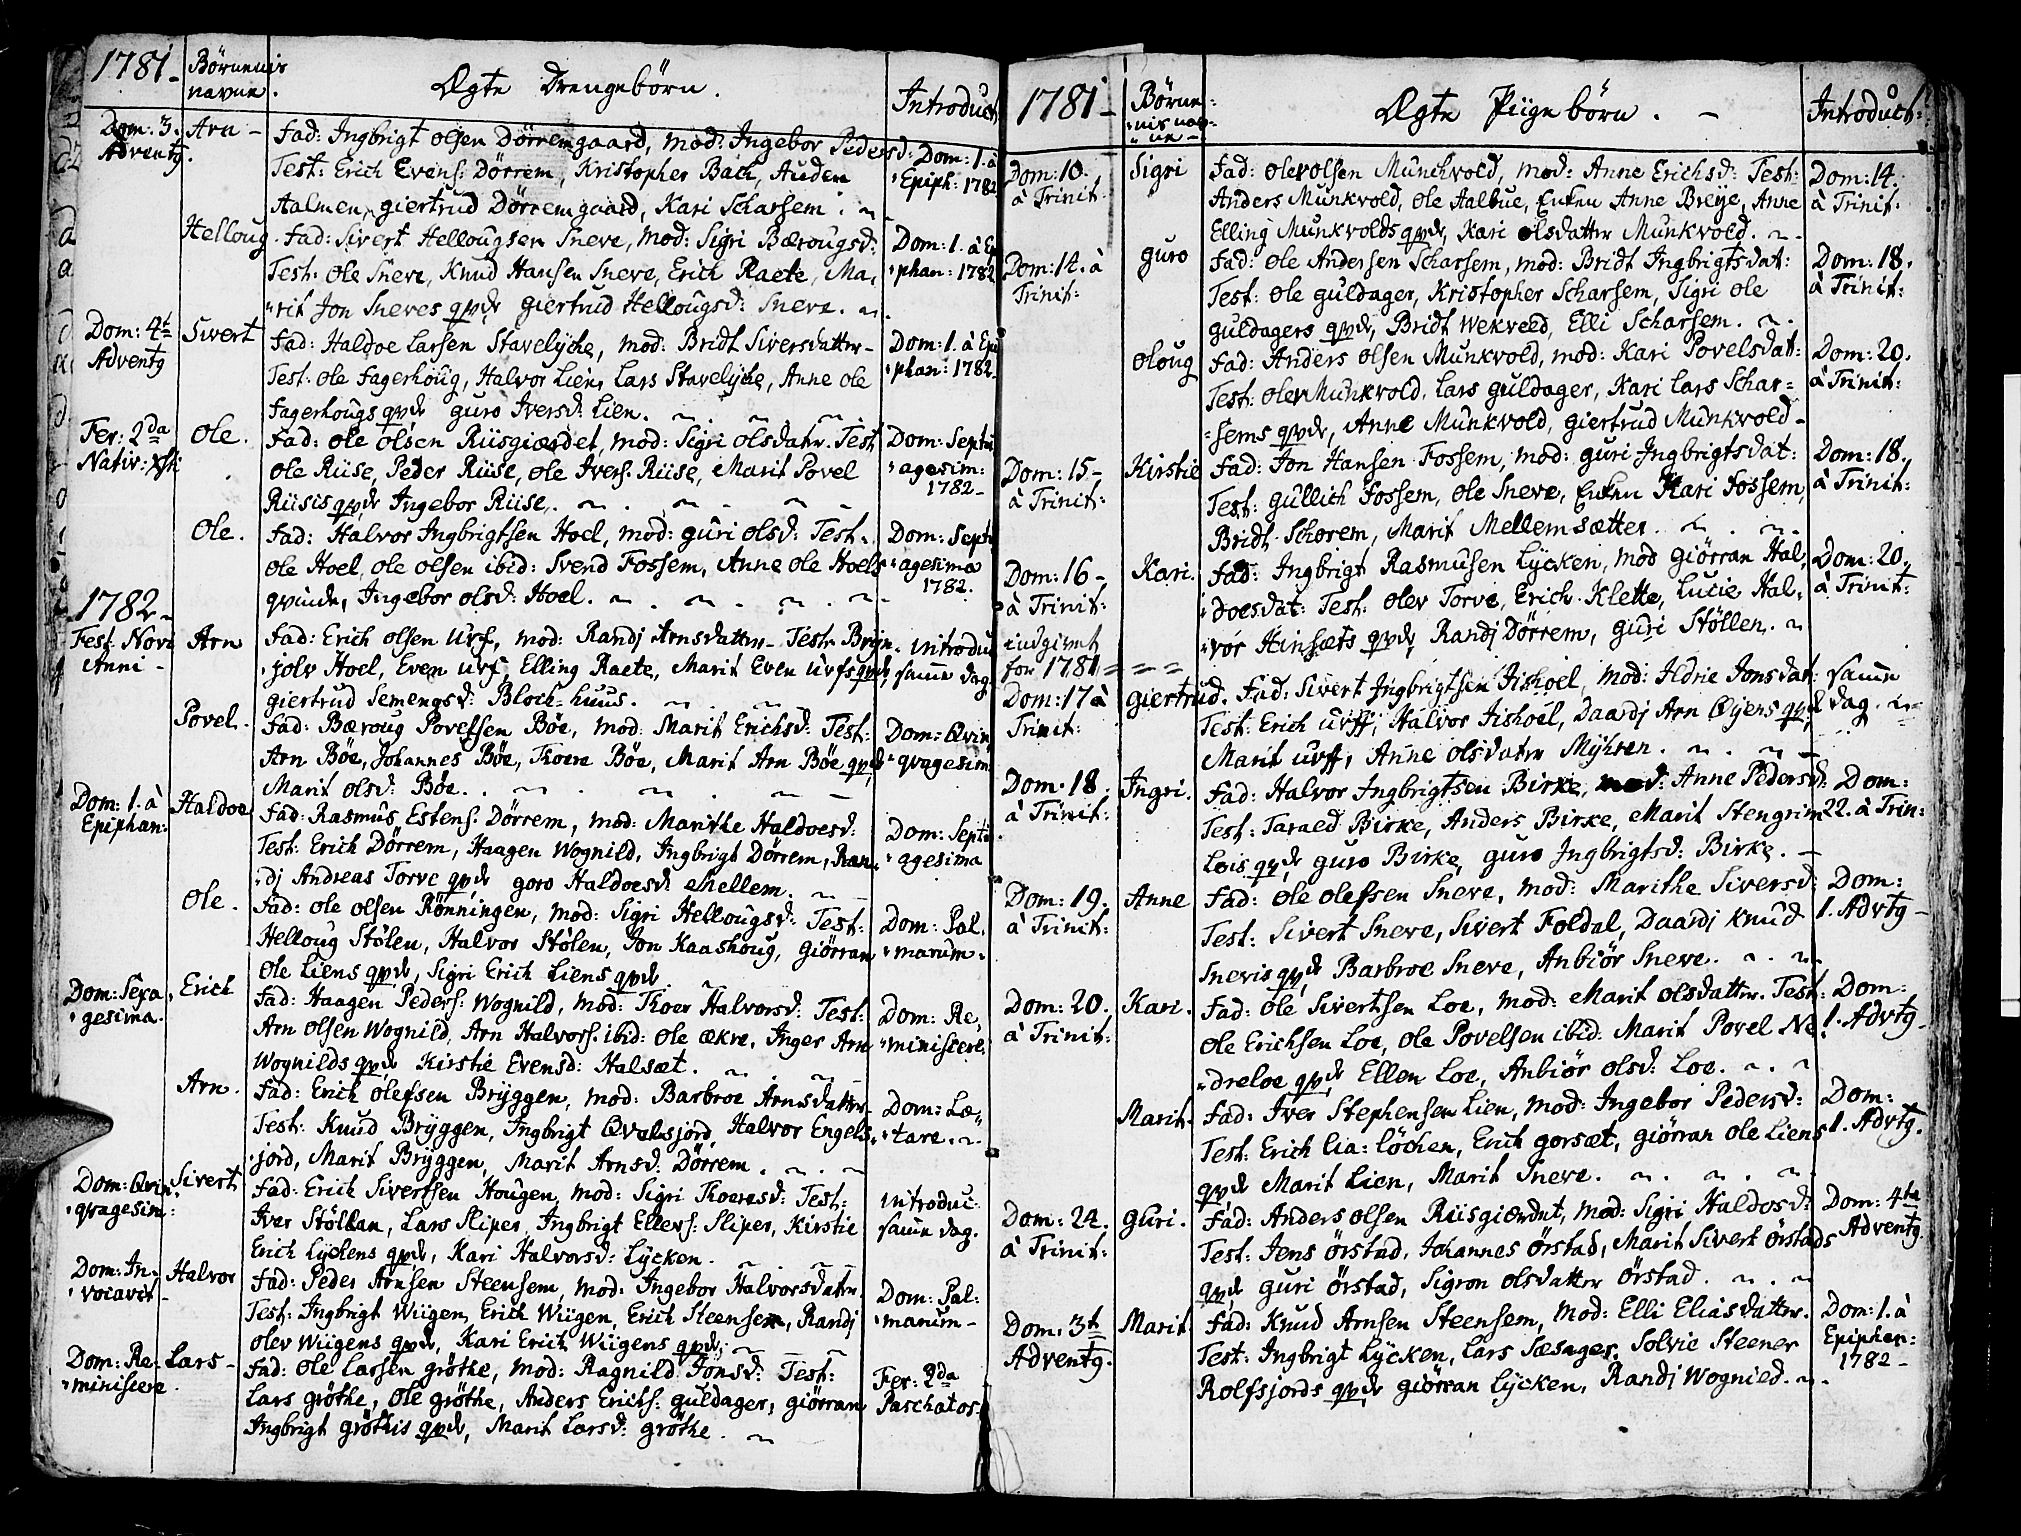 1781 - Børnenis navne. Ægte Drengebörn. Introduct
Dom: 3. Adventg. Arn - Fad: Ingbrigt olsen Dörremgaard, mod: Ingebor Pedersd: Dom: 1. à
Test: Erich Evens: Dörrem, Kristopher Bach, Auden Epiph: 1782
Aalmen, giertrud Dörremgaard, Kari Scharsem.
Helloug. Fad: Sivert Hellougsen Sneve, mod: Sigri Bærougsd: Dom: 1. à Epi
Test: Ole Sneve, Knud Hansen Sneve, Erich Raete, Ma, phan: 1782
rit Jon Sneves qvde giertrud Hellougsd: Sneve.
Dom: 4te Adventg Sivert Fad: Haldoe Larsen Stavelÿche, mod: Bridt Siversdatter - Dom: 1. à Epi
Test: Ole Fagerhoug, Halvor Lien, Lars Stavelÿche, Anne Ole phan: 1782
Fagerhougs qvde guro Iversd: Lien.
Fer: 2da Nativ: Xsti Ole. Fad: Ole olsen Riisgiærdet, mod: Sigri olsdatr. Test Dom: Septu
Ole Riise, Peder Riise, Ole Ivers: Riise, Marit Povel agesim:
Riisis qvde Ingebor Riise. 1782 -
Ole. Fad: Halvor Ingbrigtsen Hoel, mod: guri olsd: Test: Dom: Septu
Ole Hoel, ole olsen ibid: Svend Fossem, Anne Ole Hoels agesima
qvinde, Ingebor olsd: Hoel. 1782.
1782 -
Fest: Novi Anni - Arn Fad: Erich olsen Urf, mod: Randj Arnsdatter - Test: Bryn introdu
jolv Hoel, Even Urf, Elling Raete, Marit Even Urfs qvde samme dag
giertrud Semengsd: Bloch-huus.
Povel. Fad: Bæroug Povelsen Böe, mod: Marit Erichsd: Test: Dom: Qvin
Arn Böe, Johannes Böe, Thore Böe, Marit Arn Böe qvde qvagesim:
Marit olsd: Böe.
Dom: 1. à Epiphan: Haldoe Fad: Rasmus Estens: Dörrem, mod: Marithe Haldoesd: Dom: Septu
Test: Erich Dörrem, Haagen Wognild, Ingbrigt Dörrem, Ran agesima
dj Andreas Torve qvde goro Haldoesd: Mellem.
Ole. Fad: Ole olsen Rönningen, mod: Sigri Hellougsd: Test: Dom: Pal,
Helloug Stölen, Halvor Stölen, Jon Kaashoug, giörran marum.
Ole Liens qvde, Sigri Erich Liens qvde
Dom: Sexa, gesima. Erich Fad: Haagen Peders: Wognild, mod: Thoer Halvorsd: Test: Dom: Re,
Arn olsen Wognild, Arn Halvors: ibid: Ole Ækre, Inger Arn miniscere.
Wognilds qvde Kirstie Evensd: Halsæt.
Arn. Fad: Erich olefsen Brÿggen, mod: Barbroe Arnsdatter - Dom: Læ,
Test: Knud Brÿggen, Ingbrigt Qvalsjord, Halvor Engels, tare.
jord, Marit Brÿggen, Marit Arnsd: Dörrem.
Dom: Qvin, qvagesim: Sivert Fad: Erich Sivertsen Hougen, mod: Sigri Thoeresd: Test: introduc:
Iver Stöllan, Lars Sliper, Ingbrigt Ellers: Sliper, Kirstie samme dag.
Erich Lÿckens qvde, Kari Halvorsd: Lÿcken.
Dom: In- vocavit - Halvor Fad: Peder Arnsen Steensem, mod: Ingebor Halvorsdatr. Dom: Pal:
Test: Ingbrigt Wiigen, Erich Wiigen, Erich Steensem, Randj marum -
olev Wiigens qvde, Kari Erich Wiigens qvde.
Dom: Re- miniscere. Lars - Fad: Ole Larsen gröthe, mod: Ragnild Jonsd: Test: Fer: 2da
Lars gröthe, Ole gröthe, Anders Erichs: guldager, giörran Paschatos.
Ingbrigt gröthis qvde, Marit Larsd: gröthe.
1781 - Børne- nis nav- ne - Ægte Piigebörn. - Introduct:
Dom: 10. à Trinit. Sigri Fad: Olev olsen Munckvold, mod: Anne Erichsd: Test: Dom: 14.
Anders Munkvold, Ole Aalbue, Enken Anne Breÿe, Anne à Trinit:
Elling Munkvolds qvde, Kari olsdatter Munkvold.
Dom: 14. à Trinit: guro Fad: Ole Andersen Scharsem, mod: Bridt Ingbrigtsdat: Dom: 18.
Test: Ole guldager, Kristopher Scharsem, Sigri Ole à Trinit:
guldagers qvde, Bridt Wekveld, Elli Scharsem.
oloug Fad: Anders olsen Munkvold, mod: Kari Povelsdat: Dom: 20.
Test: Olev Munkvold, Lars guldager, Kari Lars Schar- à Trinit:
sems qvde, Anne Munkvold, giertrud Munkvold -
Dom: 15 - à Trinit: Kirstie Fad: Jon Hansen Fossem, mod: guri Ingbrigtsdat: Dom: 18.
Test: gullich Fossem, Ole Sneve, Enken Kari Fossem, à Trinit:
Bridt Schorem, Marit Mellemsætter.
Dom: 16 - à Trinit: Kari. Fad: Ingbrigt Rasmusen Lÿcken, mod giörran Hal, Dom: 20.
doesdat: Test: Olev Torve, Erich Klette, Lucie Hal, à Trinit:
vor Hinsæts qvde, Randj Dörrem, guri Stöllen.
indgivet for 1781
Dom: 17 à Trinit: giertrud. Fad: Sivert Ingbrigtsen Fishoel, mod: Ildrie Jonsdat: samme
Test: Erich Urff, Halvor Fishoel, Daardj Arn Øÿens qvde dag.
Marit Urff, Anne olsdater Mÿhren.
Dom: 18 à Trinit: Ingri. Fad: Halvor Ingbrigtsen Birke, mod: Anne Pedersd: Dom:
Test: Tarald Birke, Anders Birke, Marit Stengrim 22. à Trin:
Lois qvde guro Birke, guro Ingbrigtsd: Birke. -
Dom: 19. à Trinit: Anne Fad: Ole olefsen Sneve, mod: Marithe Siversd: Dom:
Test: Sivert Sneve, Sivert Foldal, Daardj Knud 1. Advtg -
Snevis qvde Barbroe Sneve, Anbiör Sneve.
Dom: 20. à Trinit: Kari. Fad: Ole Sivertsen Loe, mod: Marit olsdatter. Test: Dom:
Ole Erichsen Loe, Ole Povelsen ibid: Marit Povel Ne, 1. Advtg -
dreloe qvde Ellen Loe, Anbiör olsd: Loe.
Marit. Fad: Iver Stephensen Lien, mod: Ingebor Pedersd: Dom:
Test: Erich Lia-löcken, Erich gorsæt, giörran Ole Liens 1. Advtg.
qvde Marit Lien, Marit Sneve.
Dom: 24. à Trinit: guri. Fad: Anders olsen Riisgiærdet, mod: Sigri Haldosd: Dom: 4te
Test: Jens örstad, Johannes örstad, Marit Sivert örstads Adventg.
qvde guri örstad, Sigron olsdatter örstad.
Dom: 3te Adventg. Marit Fad: Knud Arnsen Steensem, mod: Elli Eliasdatter. Dom: 1. à
Test: Ingbrigt Lÿcken, Lars Sæsager, Solvie Steener Epiphan:
Rolfsjords qvde giörran Lÿcken, Randj Wognild. 1782 -